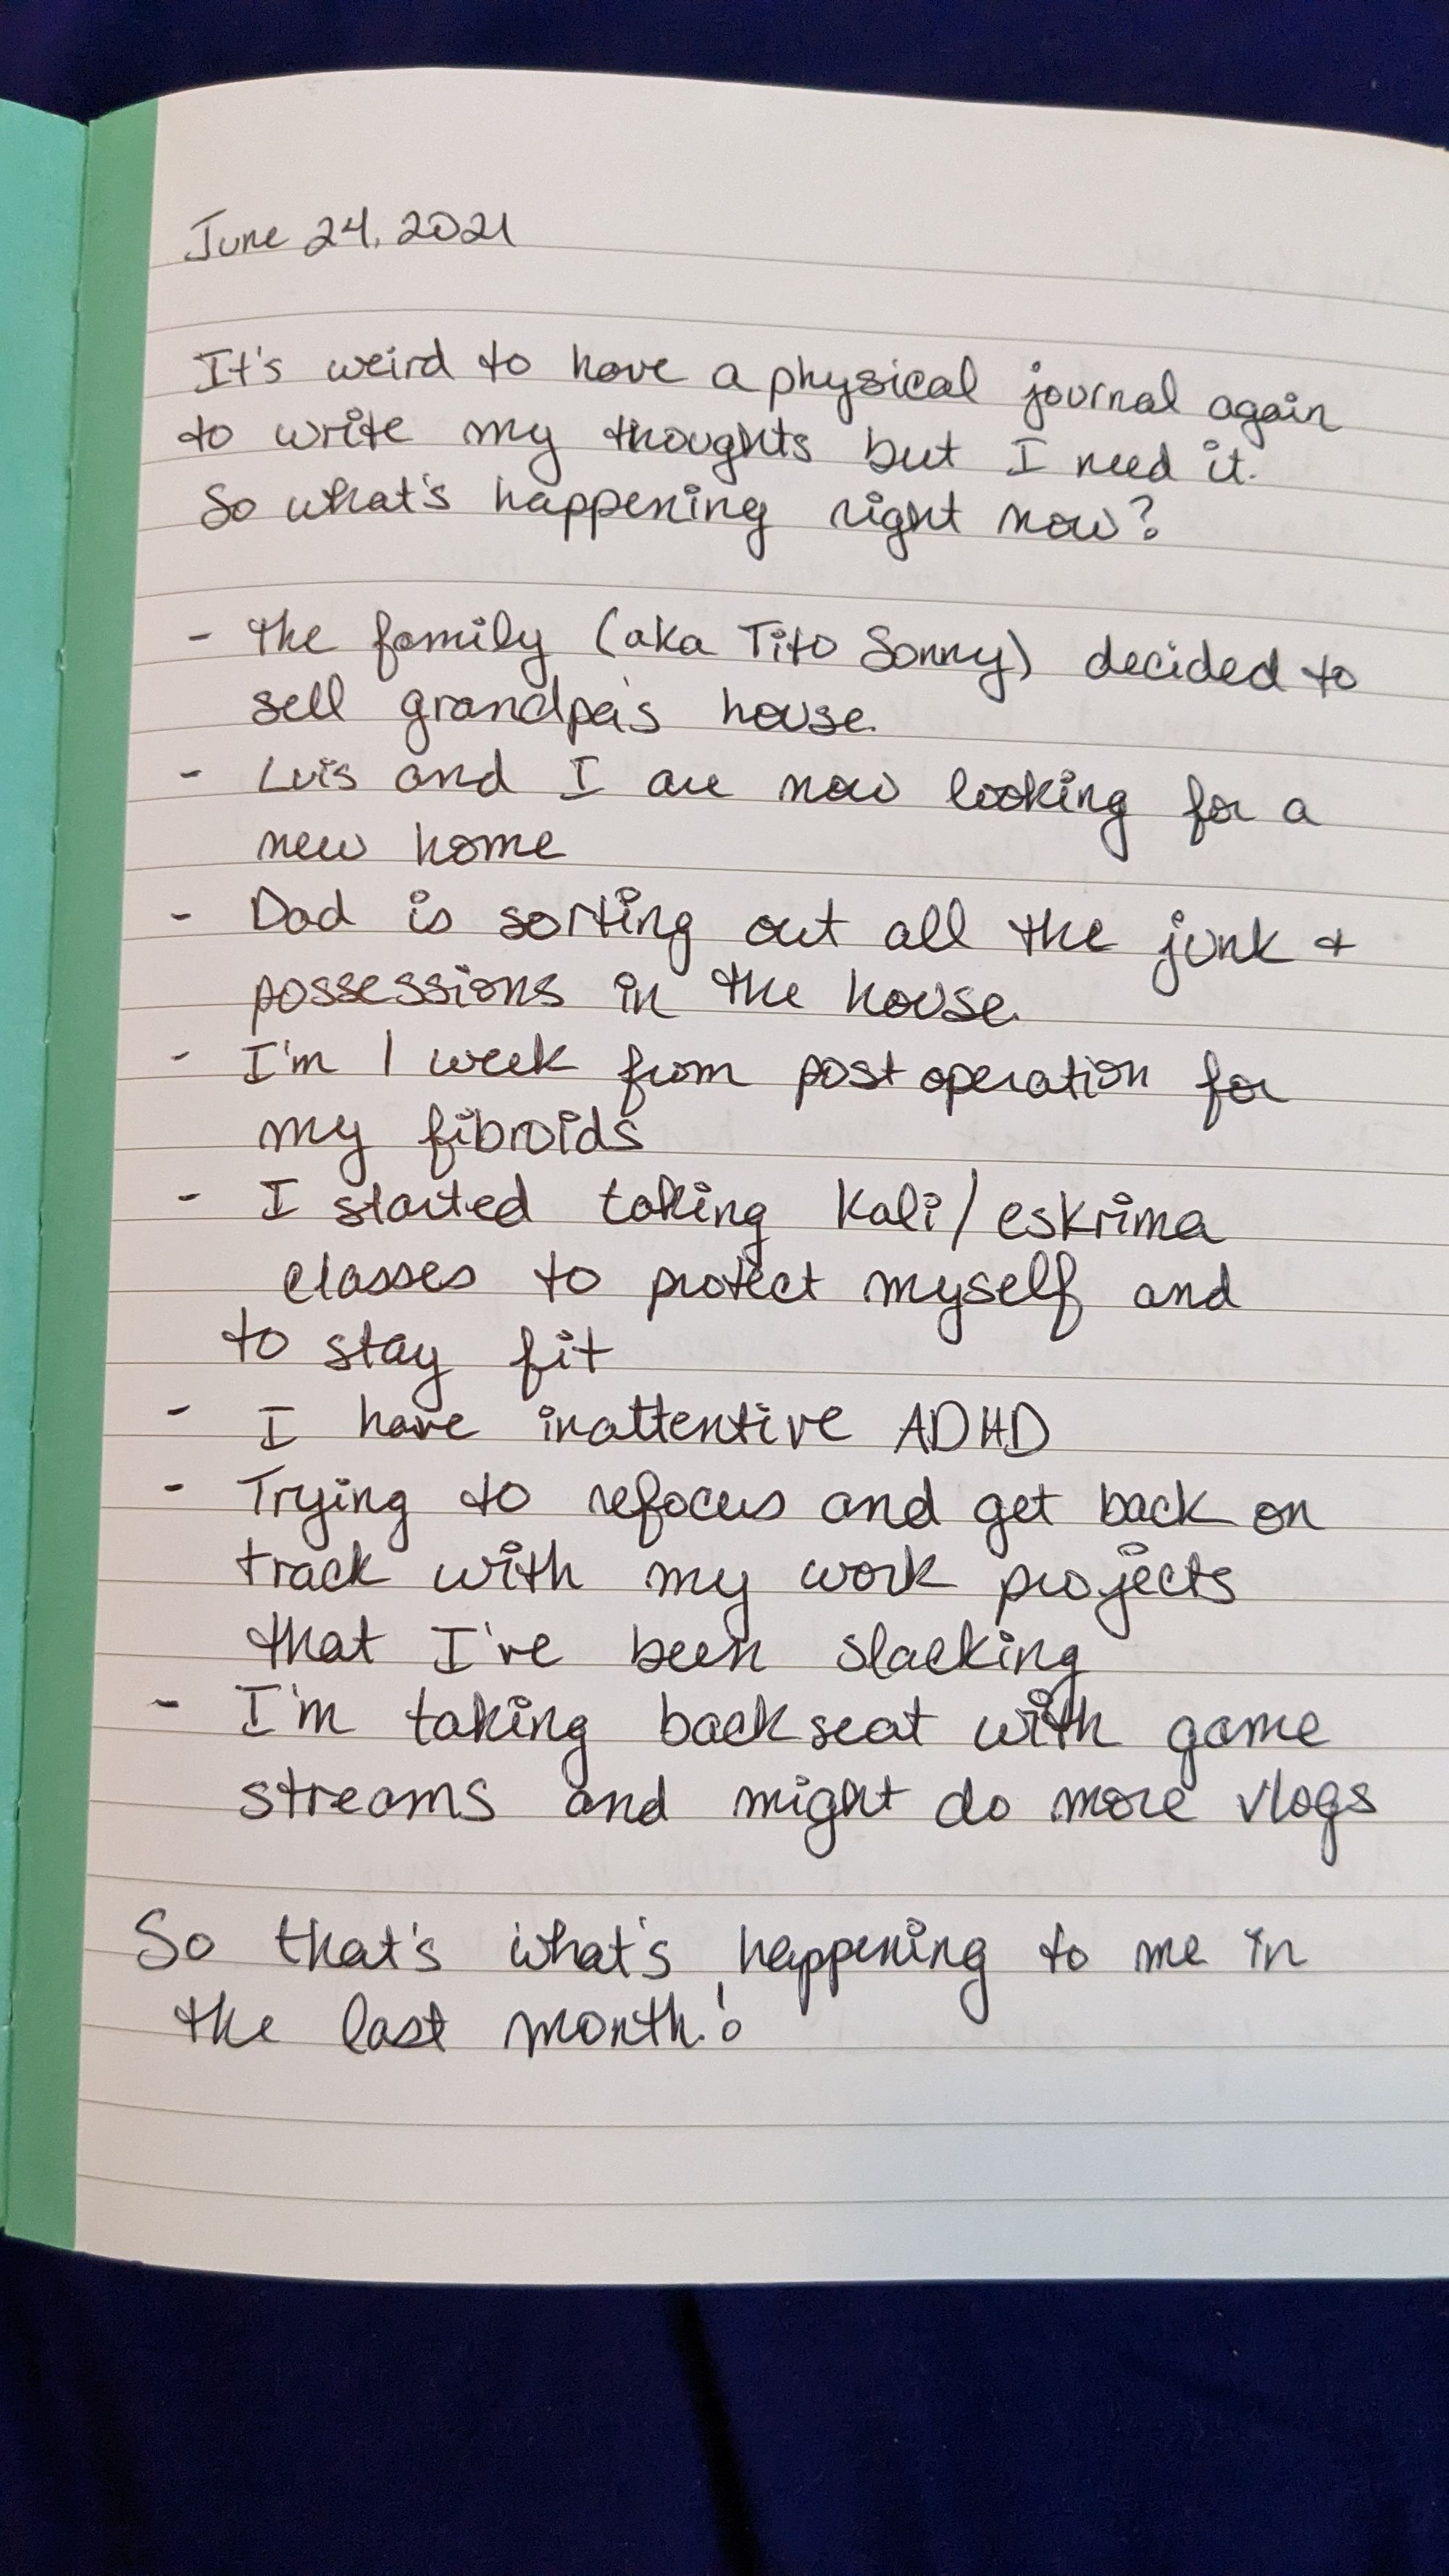 June 24, 2021
It's weird to have a physical journal again
to write my thoughts but I need it.
So what's happening right now?
- the family (aka Tito Sonny) decided to
sell grandpa's house.
- Luis and I are now looking for a
new home
- Dad is sorting out all the junk +
possessions in the house.
- I'm 1 week from post operation for
my fibroids
- I started taking Kali/eskrima
classes to protect myself and
to stay fit
- I have inattentive ADHD
- Trying to refocus and get back on
track with my work projects
that I've been slacking
- I'm taking back seat with game
streams and might do more vlogs
So that's what's happening to me in
the last month!